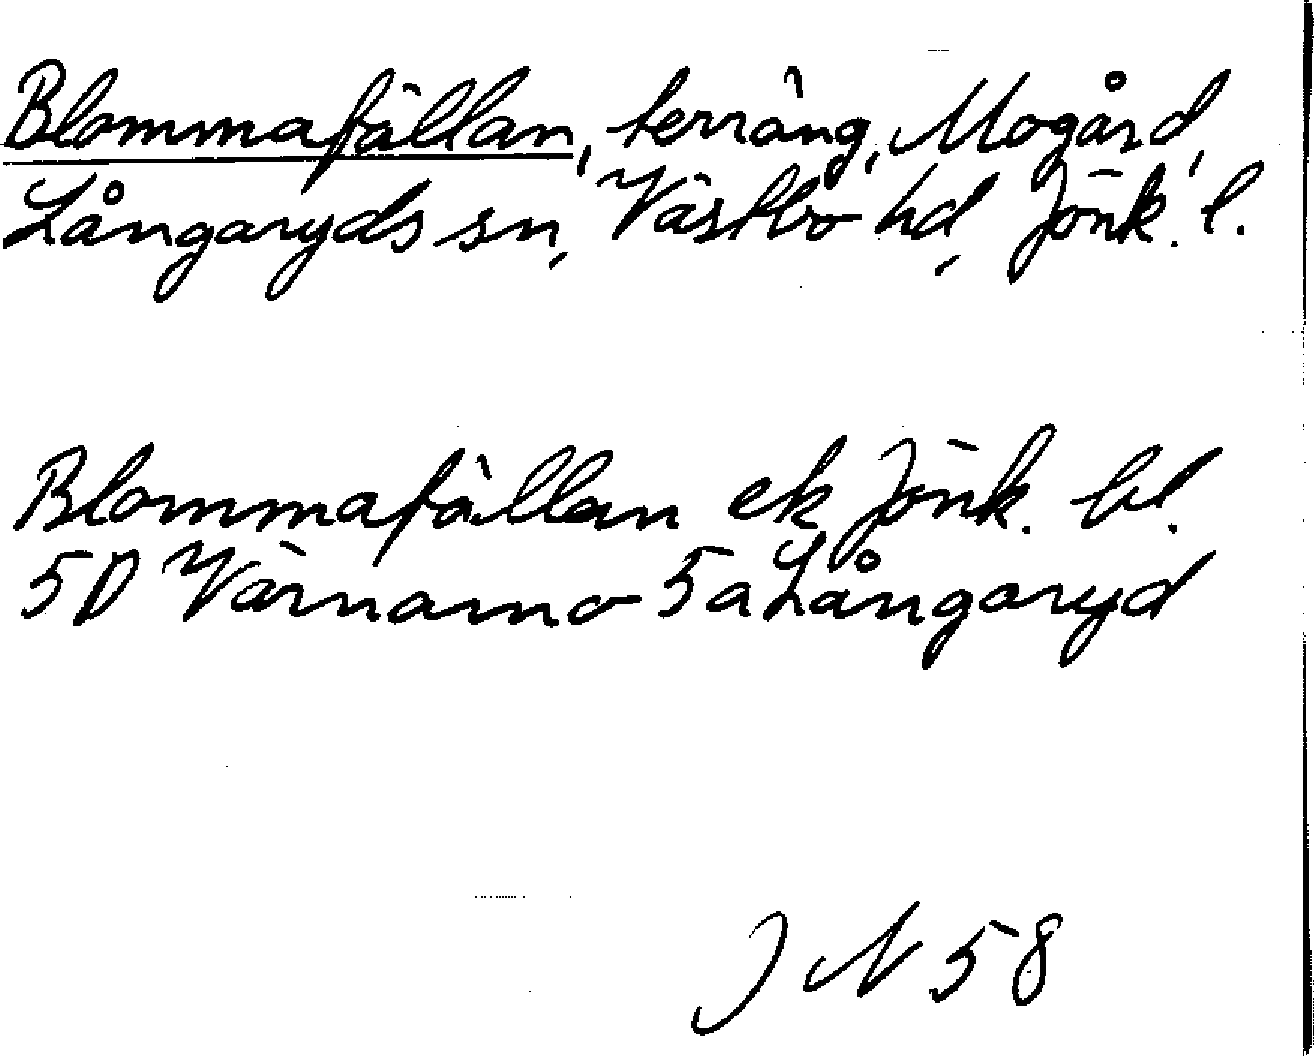 Blommafällan, terräng, Mogård,
Långaryds sn, Västbo hd, Jönk. l.
Blommafällan ek Jönk. bl.
5D Värnamo 5a Långaryd
JN 58